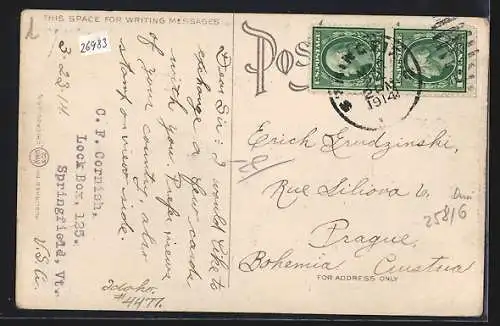 THIS SPACE FOR WRITING MESSAGES
26983
POS
Dear Sir: I would like to
exchange a few cards
with you. Prefer views
of your country, also
stamp on view side.
3-23-14
C. F. Cornish,
Lock Box, 125.
Springfield, Vt.
U.S.A.
Idaho.
#4477.
SPRINGFIELD
1914
U.S. POSTAGE
1 CENT 1
Erich Grudzinski,
Rue Siliova 6,
Prague,
Bohemia Austria
25816
FOR ADDRESS ONLY